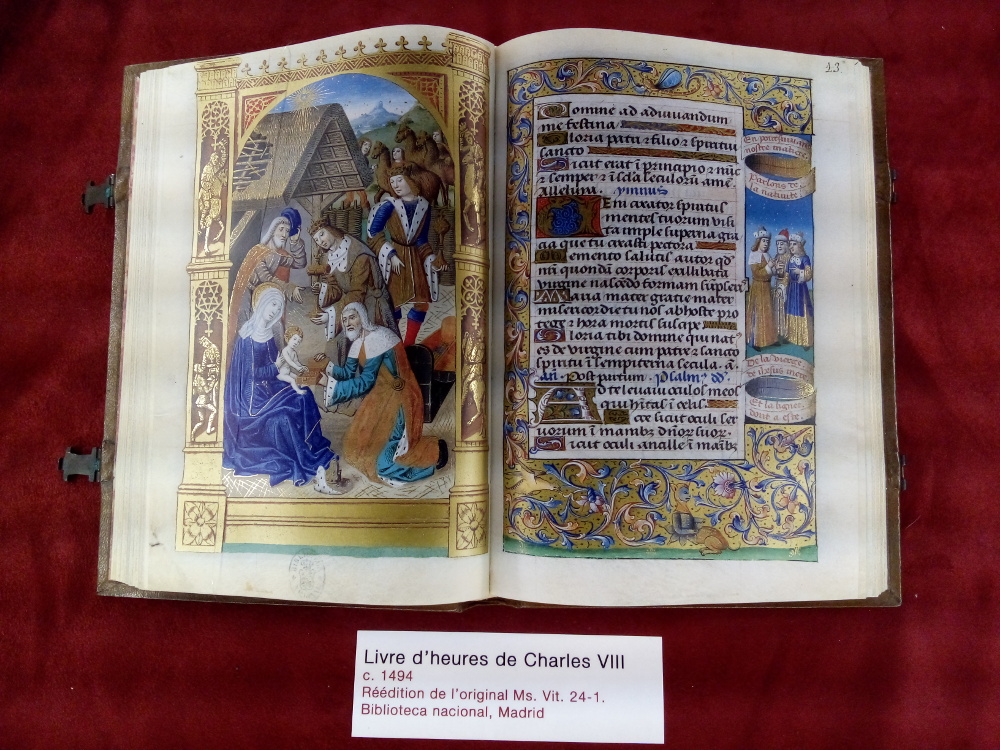 43
omine ad adiuuandum
me festina
loria patri ⁊ filio ⁊ spiritu
sancto
Sicut erat ī principio ⁊ nūc
⁊ semper ⁊ ī scla seculorū amē
alleluya. ymnus
Eni creator spiritus
mentes tuorum visi
ta imple superna gra
cia que tu creasti pectora
emento salutis autor qd
nr̄i quondā corporis exillibata
virgine nascēdo formam sūpseris
Maria mater gracie mater
misericordie tu nos ab hoste pro
tege ⁊ hora mortis suscipe
Gloria tibi domine qui nat⁹
es de virgine cum patre ⁊ sancto
spiritu ī sempiterna secula. a.
añ. Post partum. psalm⁹ dd
Ad te leuaui oculos meos
qui habitas ī celis.
cce sicut oculi ser
uorum ī manib⁹ dnor̄ suor̄.
Sicut oculi ancille ī manib⁹
En poursuivant
nostre matiere
Parlons de
la nativite
De la vierge
Et la lignee
dont a este
Livre d'heures de Charles VIII
c. 1494
Réédition de l'original Ms. Vit. 24-1.
Biblioteca nacional, Madrid